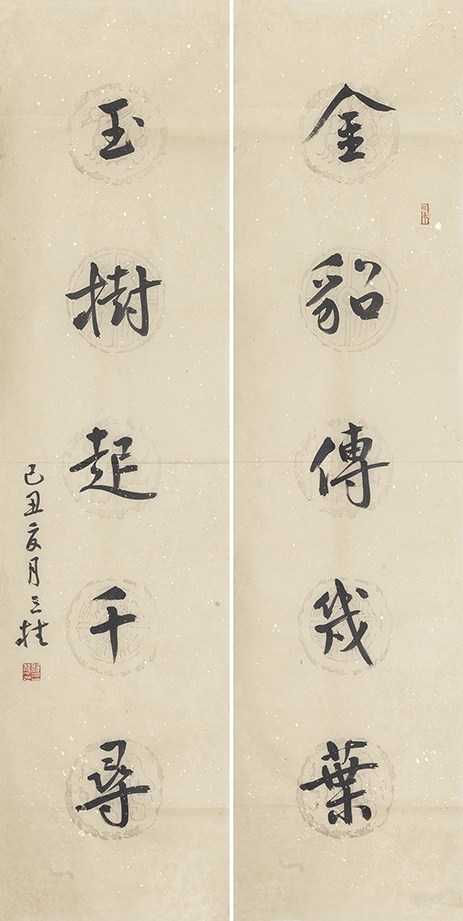 金貂傳幾葉
玉樹起千尋
己丑夏月三桂